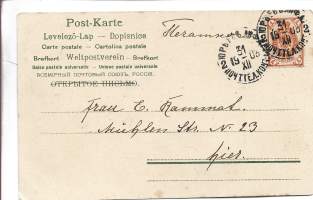 Post-Karte
Levelező-Lap — Dopisnice
Carte postale — Cartolina postale
Brefkort. Weltpostverein - Brefkort
Unione postale universale — Union postale universelle
ВСЕМІРНЫЙ ПОЧТОВЫЙ СОЮЗЪ, РОССІЯ.
ОТКРЫТОЕ ПИСЬМО.
31
XII
31
XII
Frau E. Kammat.
Mühlen Str. N. 23
hier.